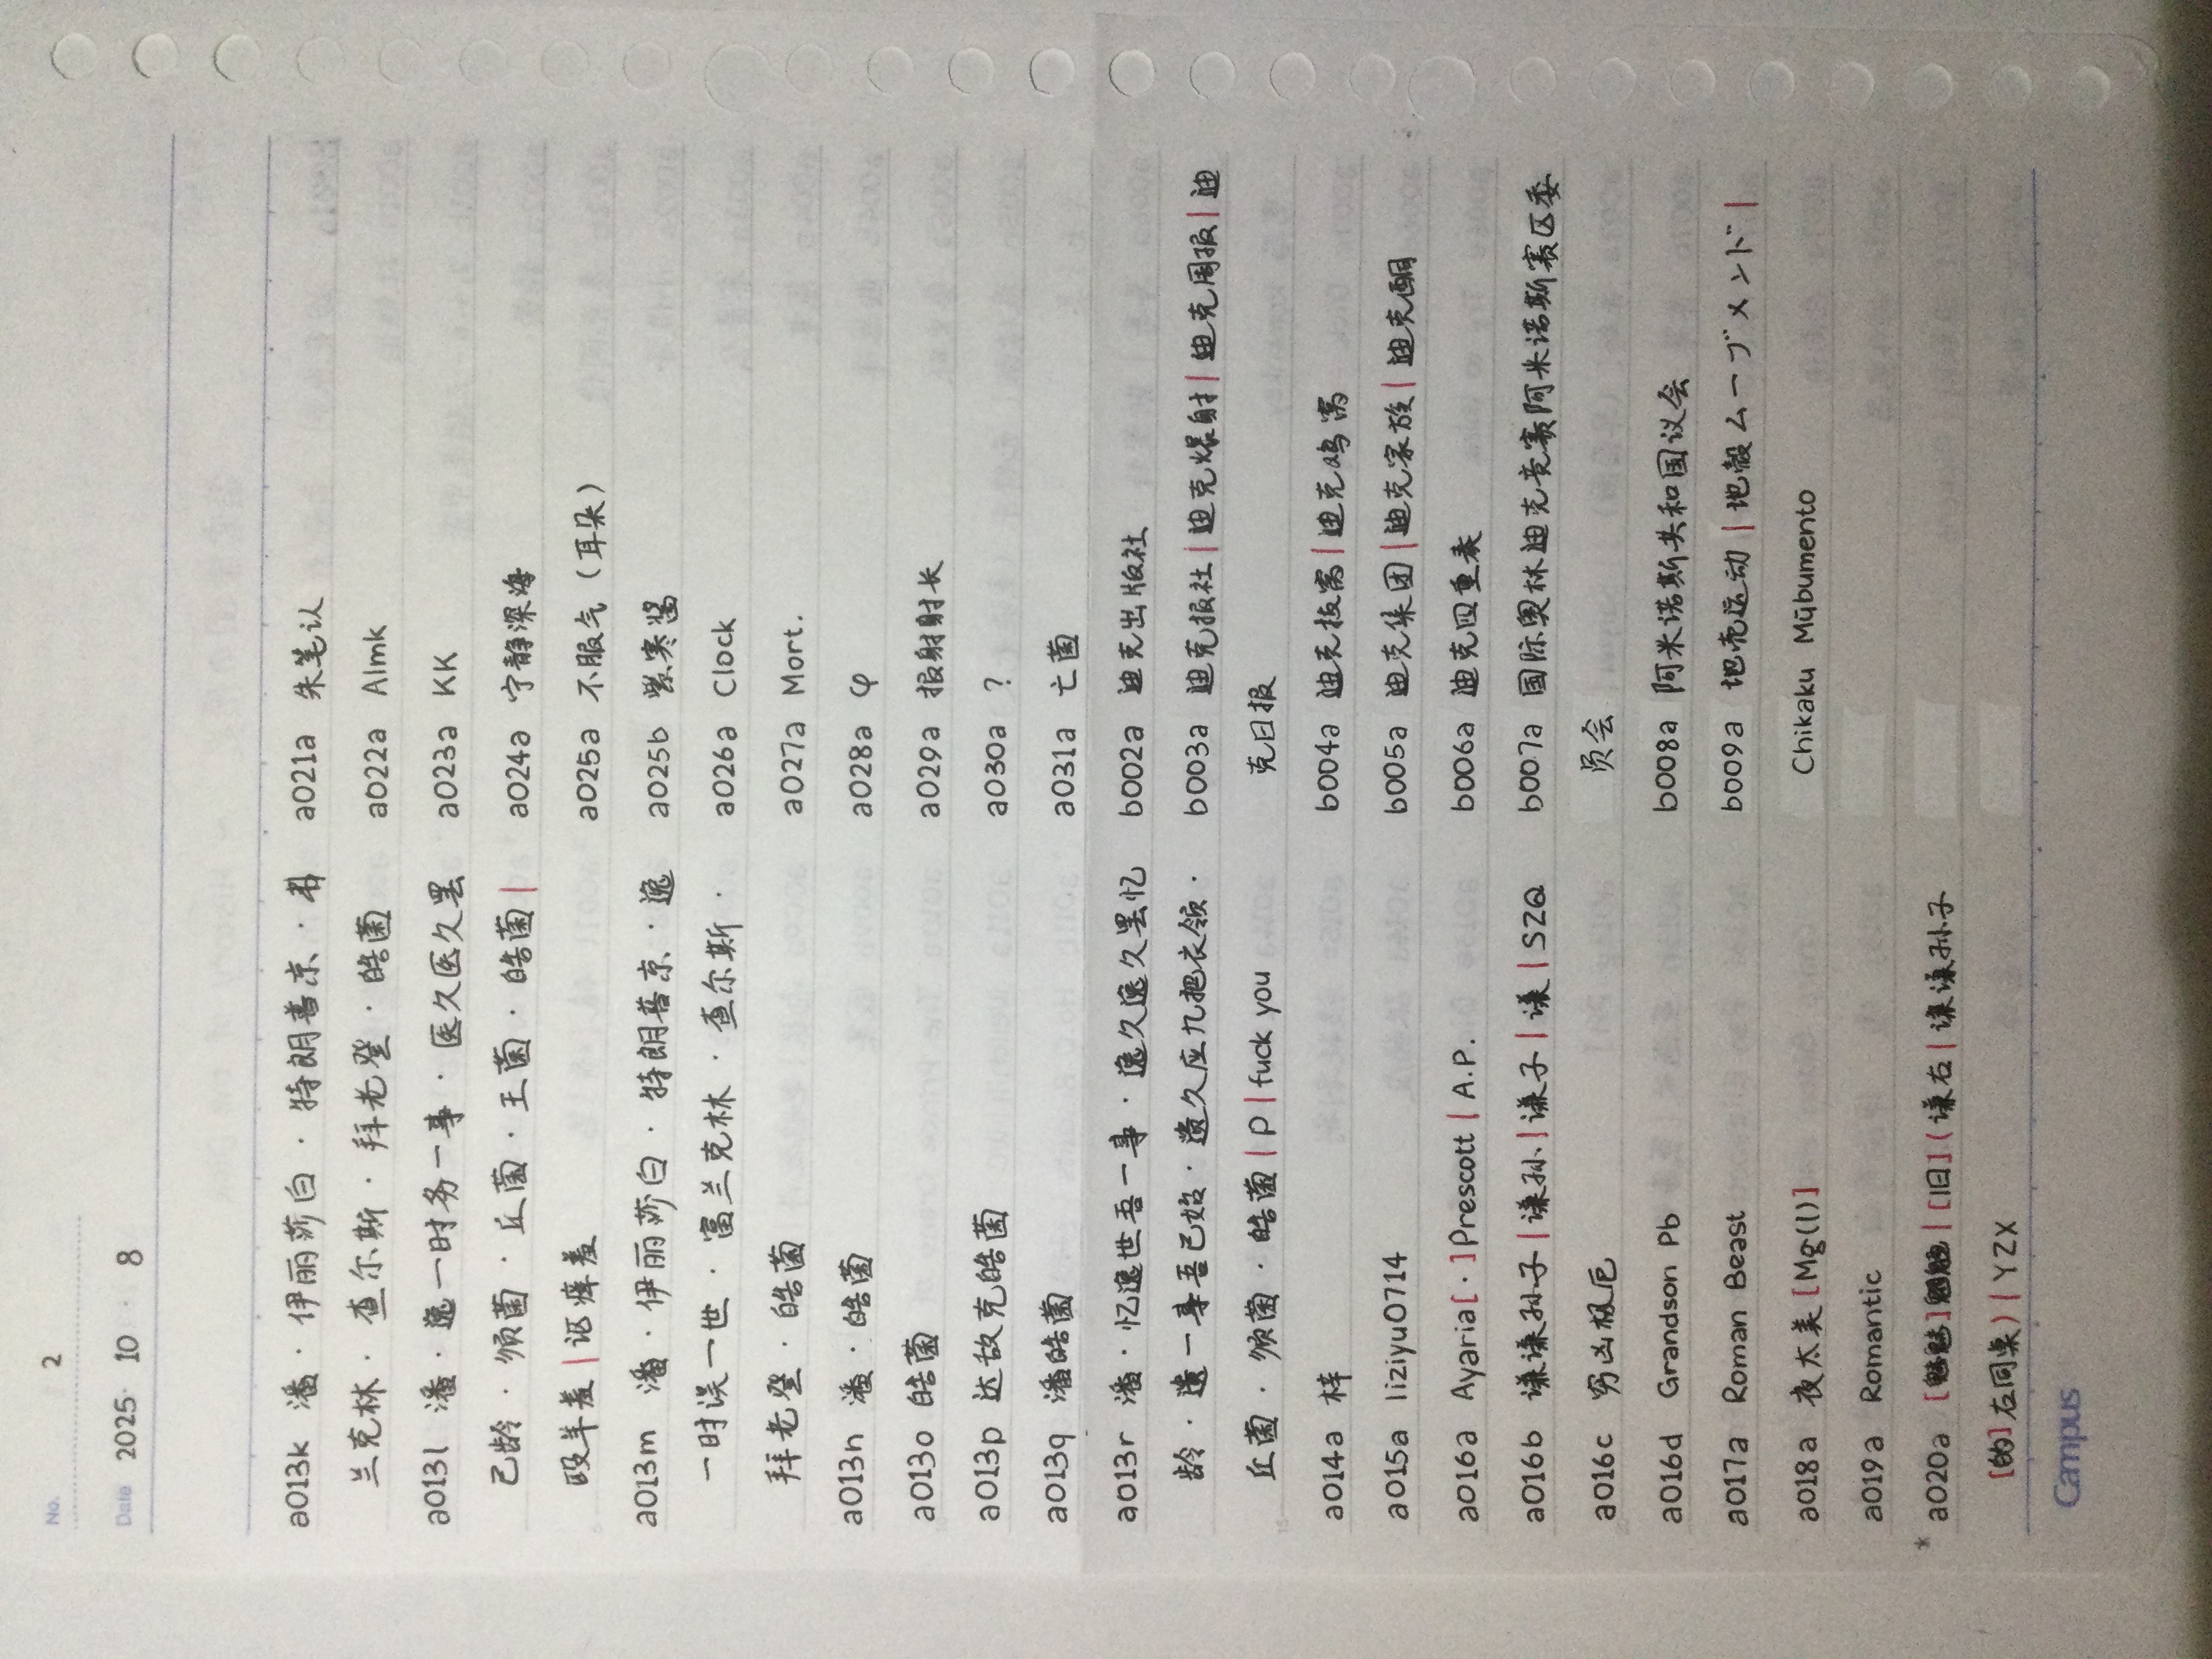 No. 2
Date 2025 · 10 · 8
a013k 潘·伊丽莎白·特朗普京·
兰克林·查尔斯·拜老登·皓菌
a013l 潘·逸一时务一事·医久医久罢
己龄·颁菌·丘菌·王菌·皓菌|
殴羊羞|讴痒羞
a013m 潘·伊丽莎白·特朗普京·逸
一时误一世·富兰克林·查尔斯·
拜老登·皓菌
a013n 潘·皓菌
a013o 皓菌
a013p 达敌克皓菌
a013q 潘皓菌
a013r 潘·忆逸世吾一事·逸久逸久罢忆
龄·遗一事吾己始·遗久应九把衣领·
丘菌·颁菌·皓菌|P|fuck you
a014a 梓
a015a liziyu0714
a016a Ayaria[·]Prescott|A.P.
a016b 谦谦孙子|谦孙|谦子|谦|SZQ
a016c 穷凶极厄
a016d Grandson Pb
a017a Roman Beast
a018a 夜太美[Mg(l)]
a019a Romantic
*a020a [魑魅]魍魉|[旧](谦右|谦谦孙子
[的]右同桌)|YZX
a021a 朱笔认
a022a Almk
a023a KK
a024a 宁静深海
a025a 不服气(耳朵)
a025b 寒酱
a026a Clock
a027a Mort.
a028a φ
a029a 报射射长
a030a ?
a031a 亡菌
b002a 迪克出版社
b003a 迪克报社|迪克爆射|迪克周报|迪
克日报
b004a 迪克拔窝|迪克鸡窝
b005a 迪克集团|迪克家族|迪克酮
b006a 迪克四重奏
b007a 国际奥林迪克竞赛阿米诺斯赛区委
员会
b008a 阿米诺斯共和国议会
b009a 地壳运动|地殻ムーブメンド|
Chikaku Mūbumento
Campus